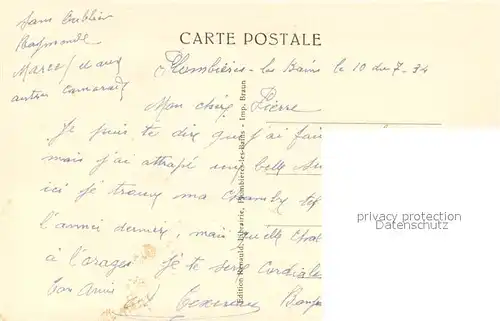 Sans oublier
Raymonde
Marcel et aux
autres camarades
CARTE POSTALE
Plombières-les Bains le 10 du 7-34
Mon cher Pierre
Je puis te dire que j'ai fai
mais j'ai attrapé une belle
ici je trouve ma chambre
l'année dernière, mais quelle
à l'orage je te serre cordiale
Ton ami
Edition Renauld, Librairie, Plombières-les-Bains - Imp. Braun
privacy protection
Datenschutz